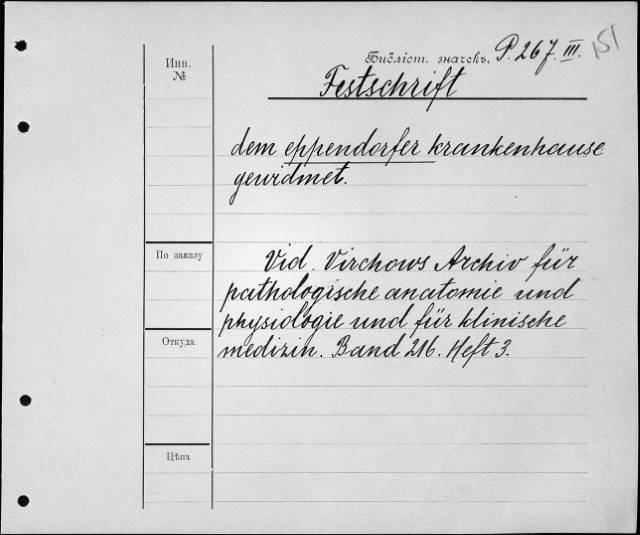 Инв.
№
Библіот. значекъ. P. 267. III. 151
Festschrift
dem eppendorfer krankenhause
gewidmet.
По заказу
Vid. Virchows Archiv für
pathologische anatomie und
physiologie und für klinische
Откуда
medizin. Band 216. Heft 3.
Цѣна